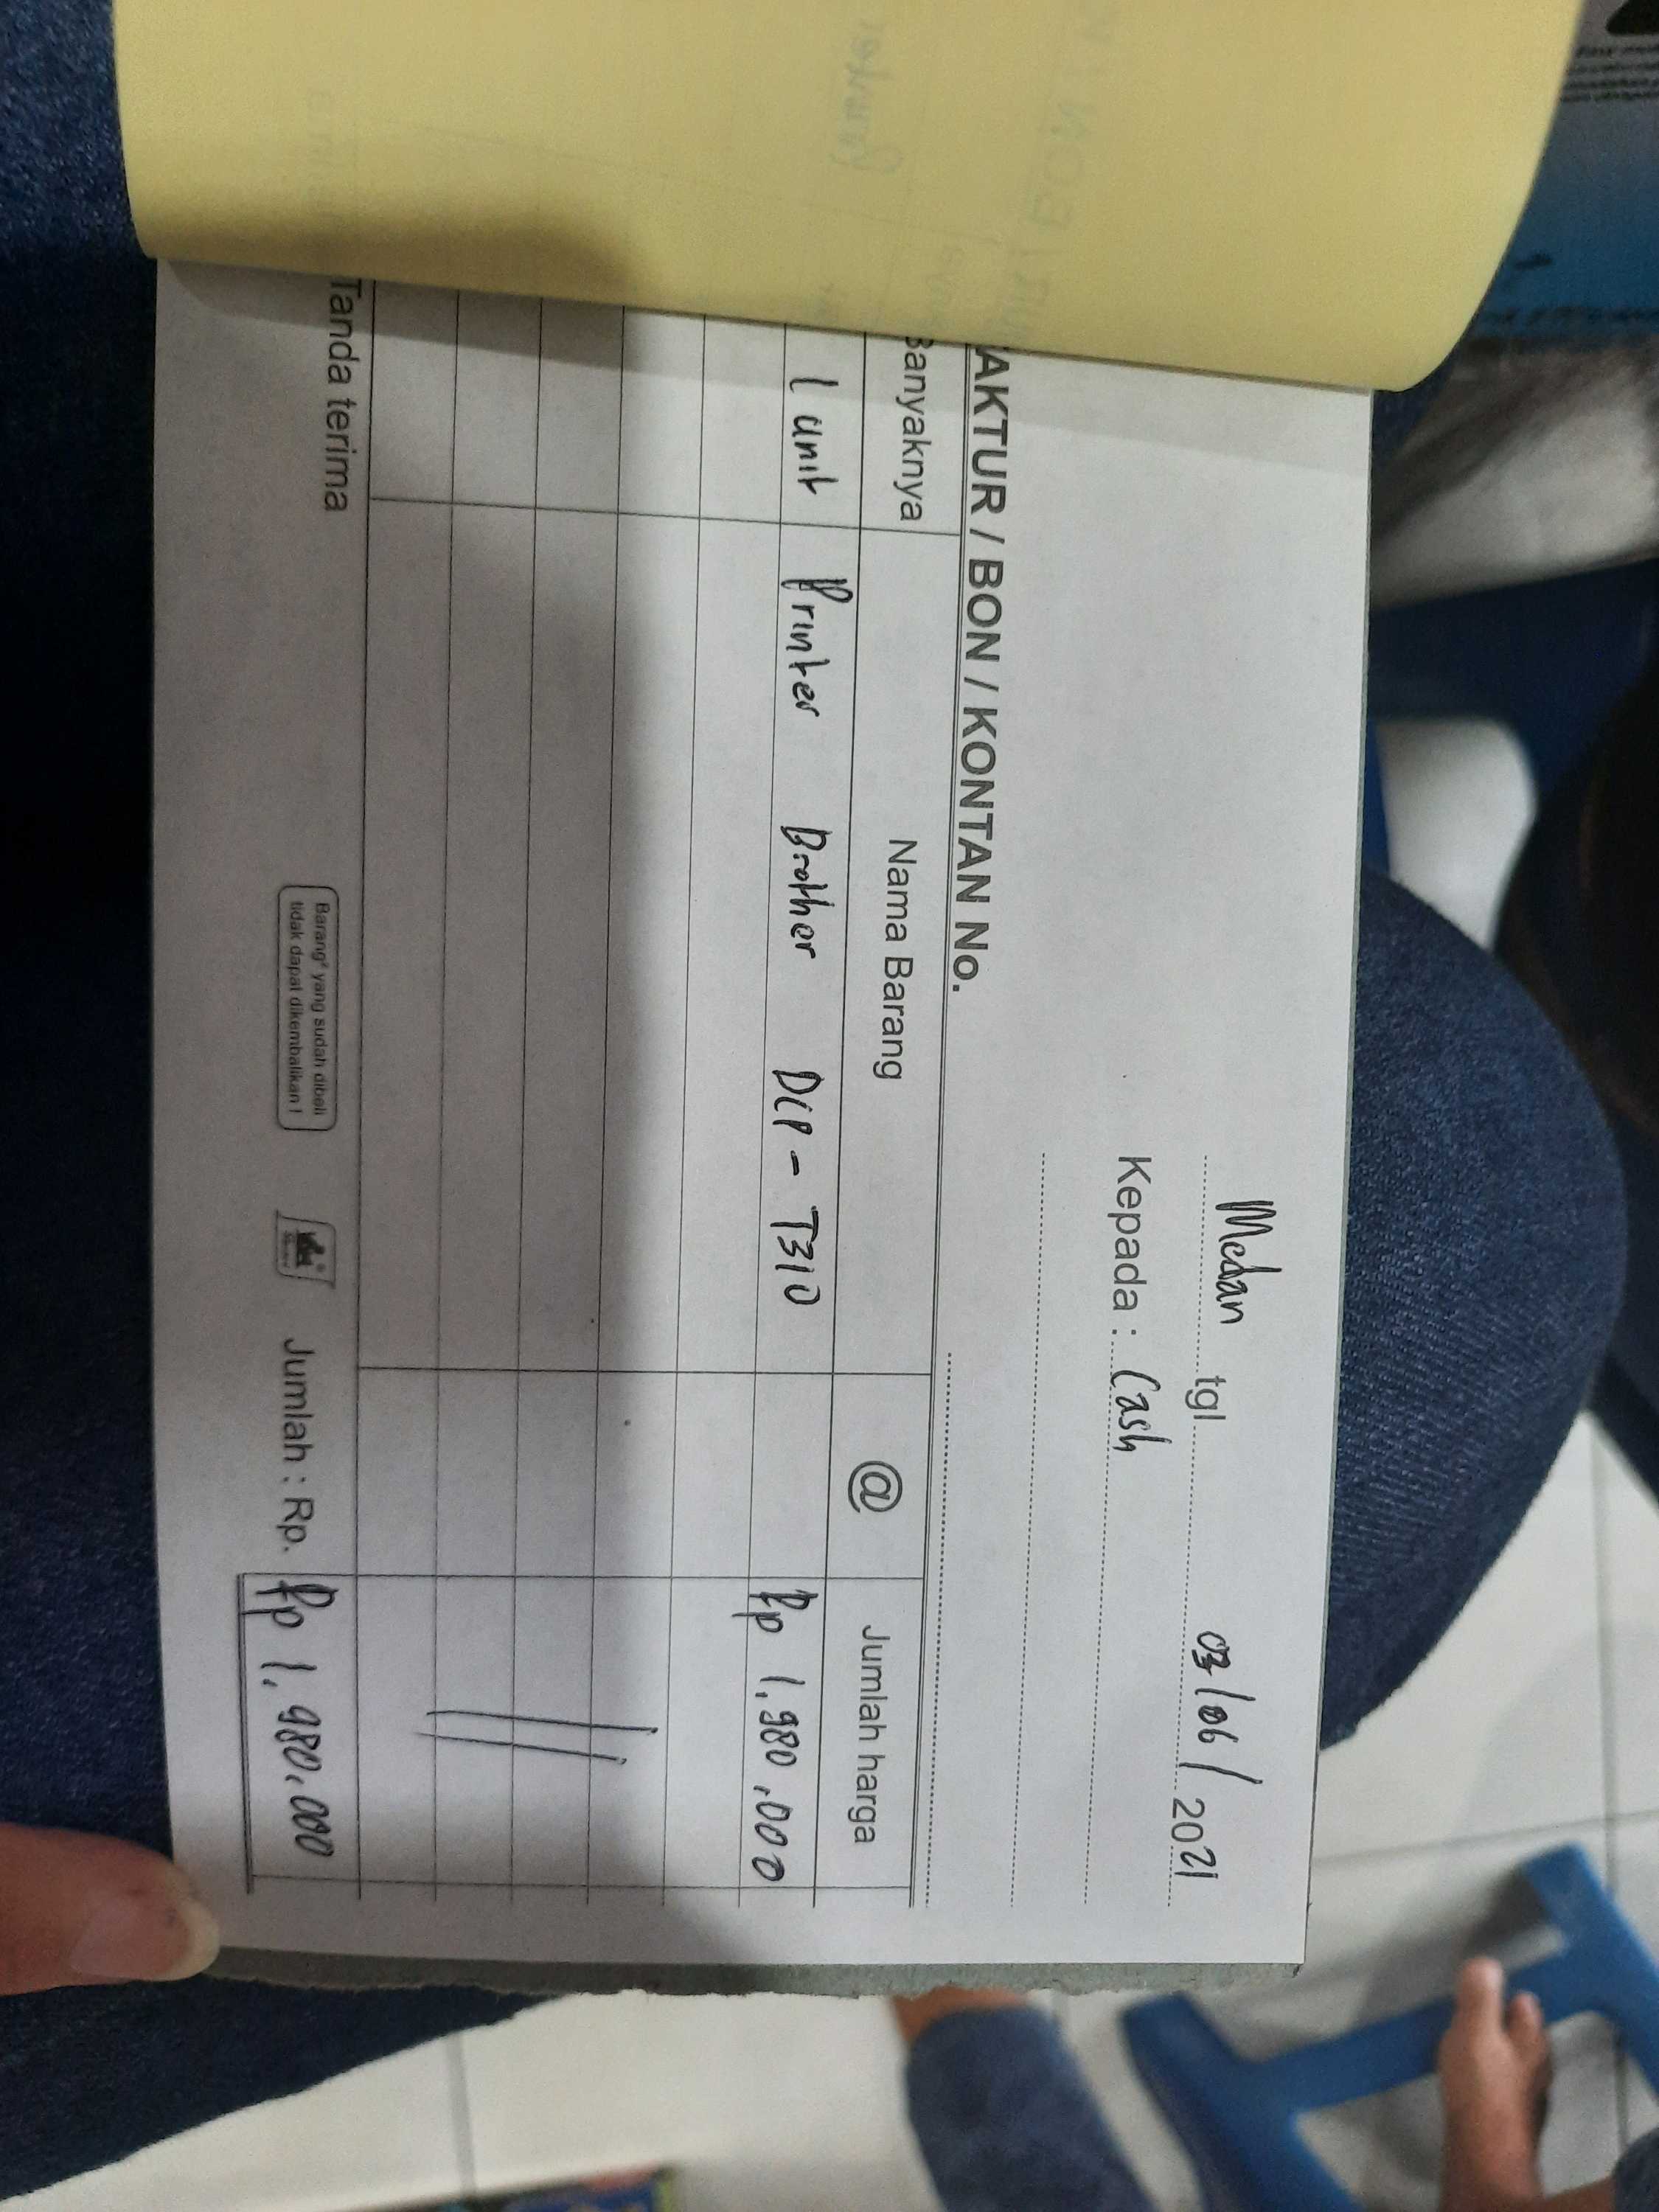 Medan tgl 03/06/2021
Kepada : Cash
AKTUR / BON / KONTAN No.
Banyaknya Nama Barang @ Jumlah harga
1 unit Printer Brother DCP - T310 Rp 1.980.000
Tanda terima
Barang² yang sudah dibeli
tidak dapat dikembalikan !
Jumlah : Rp. Rp 1.980.000